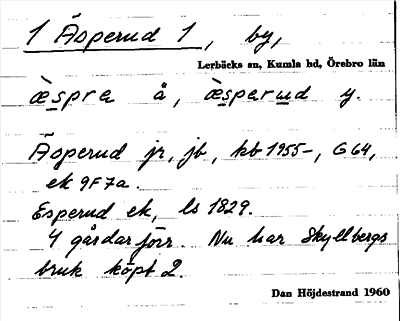 1 Äsperud 1, by,
Lerbäcks sn, Kumla hd, Örebro län
æ̀spra å, æ̀sparud y.
Äsperud jr, jb, kb 1955-, G 64,
ek 9F7a.
Esperud ek, ls 1829.
4 gårdar förr. Nu har Skyllbergs
bruk köpt 2.
Dan Höjdestrand 1960